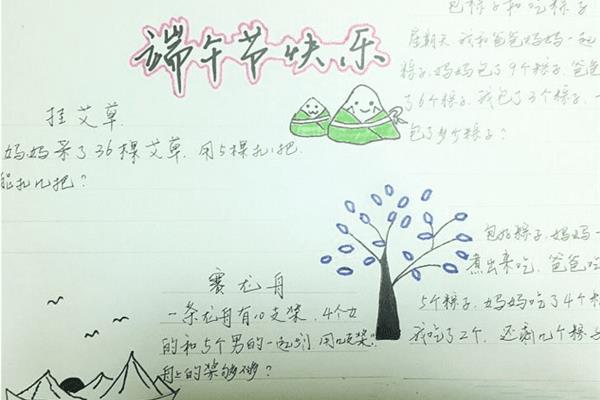 端午节快乐
包粽子和吃粽子
星期天我和爸爸妈妈一起
粽子,妈妈包了9个粽子,爸爸
了6个粽子,我包了3个粽子,一
包了多少个粽子?
挂艾草
妈妈采了36棵艾草,用5棵扎1把,
能扎几把?
包好粽子,妈妈
煮出来吃,爸爸吃
5个粽子,妈妈吃了4个粽
我吃了2个,还剩几个粽子
赛龙舟
一条龙舟有10支桨,4个女
的和5个男的一起划,用12支桨,
舟上的桨够不够?